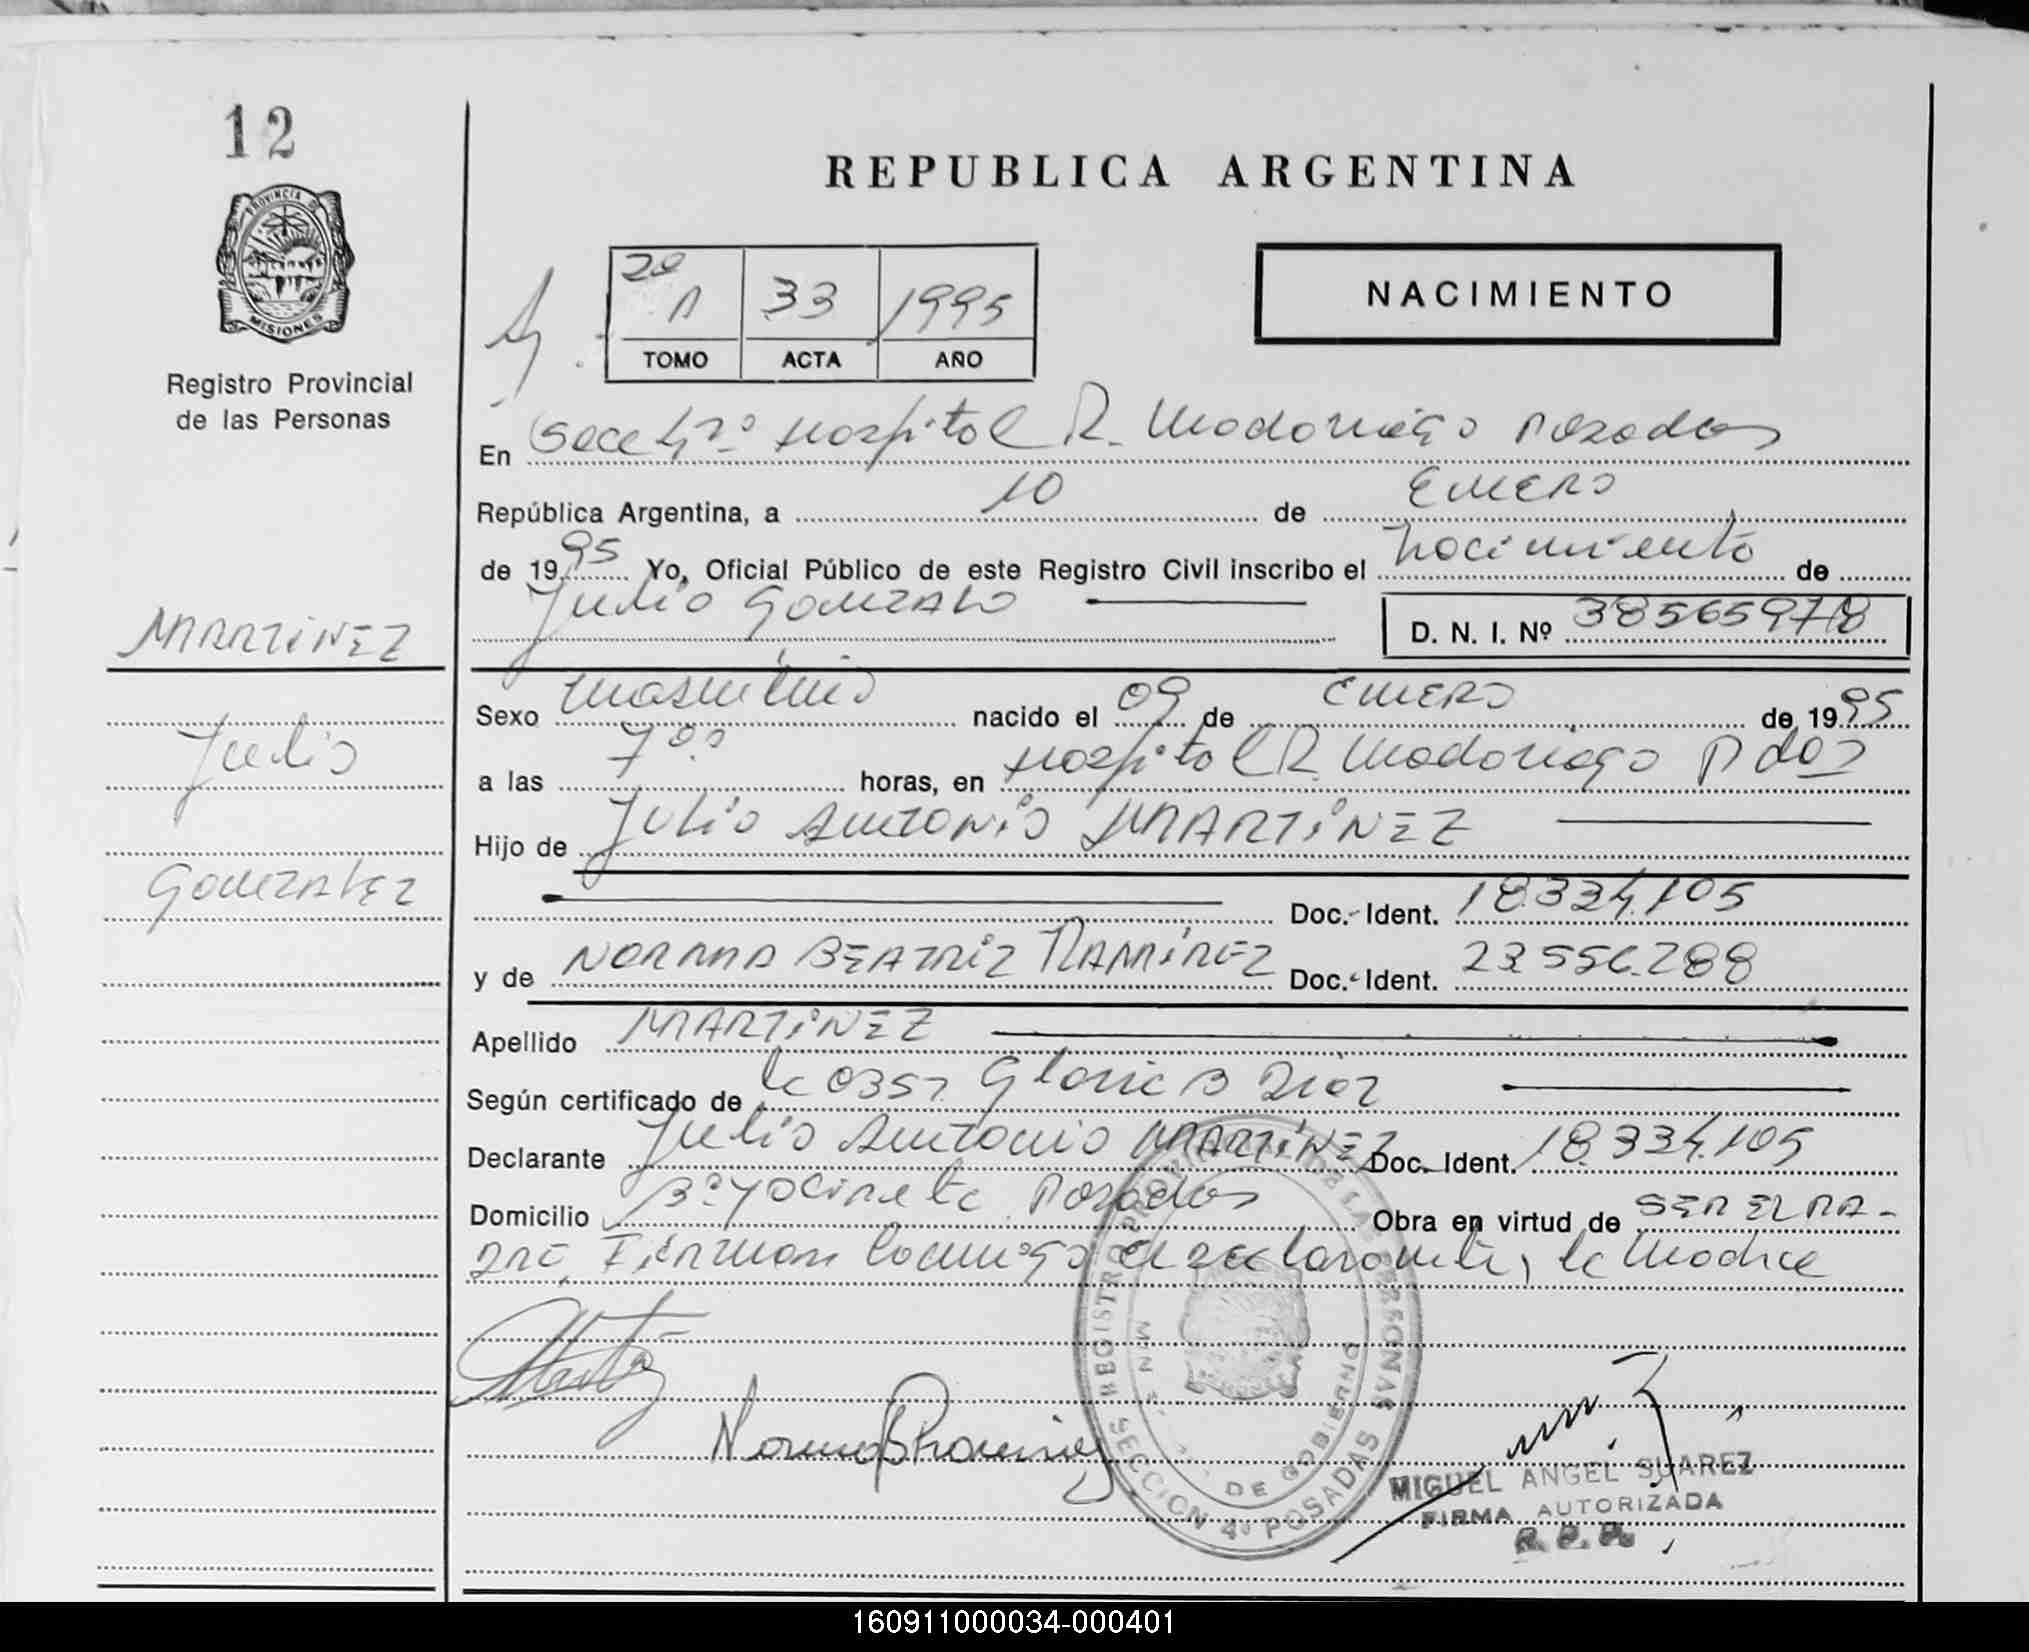 12
PROVINCIA DE
MISIONES
Registro Provincial
de las Personas
MARTINEZ
Julio
GONZALEZ
REPUBLICA ARGENTINA
2º
A 33 1995
TOMO ACTA AÑO
NACIMIENTO
En Secc 4ºº Hospital R. Madariaga Posadas
República Argentina, a 10 de ENERO
de 1995 Yo, Oficial Público de este Registro Civil inscribo el nacimiento de
Julio GONZALO D. N. I. Nº
Sexo masculino nacido el 09 de ENERO de 1995
a las 7ºº horas, en Hospital R. Madariaga Pdas
Hijo de Julio Antonio MARTINEZ
Doc. Ident. 18.334.105
y de NORMA BEATRIZ RAMIREZ Doc. Ident. 23.556.288
Apellido MARTINEZ
Según certificado de la OBST. Gloria B Diaz
Declarante Julio Antonio MARTINEZ Doc. Ident. 18.334.105
Domicilio Bº Yacireta Posadas Obra en virtud de SER EL PA-
DRE, Firman conmigo el declarante, la madre
Norma B Ramirez
REGISTRO PROVINCIAL DE LAS PERSONAS
MIN DE GOBIERNO
SECCION 4º POSADAS
MIGUEL ANGEL SUAREZ
FIRMA AUTORIZADA
R. P. P.
160911000034-000401